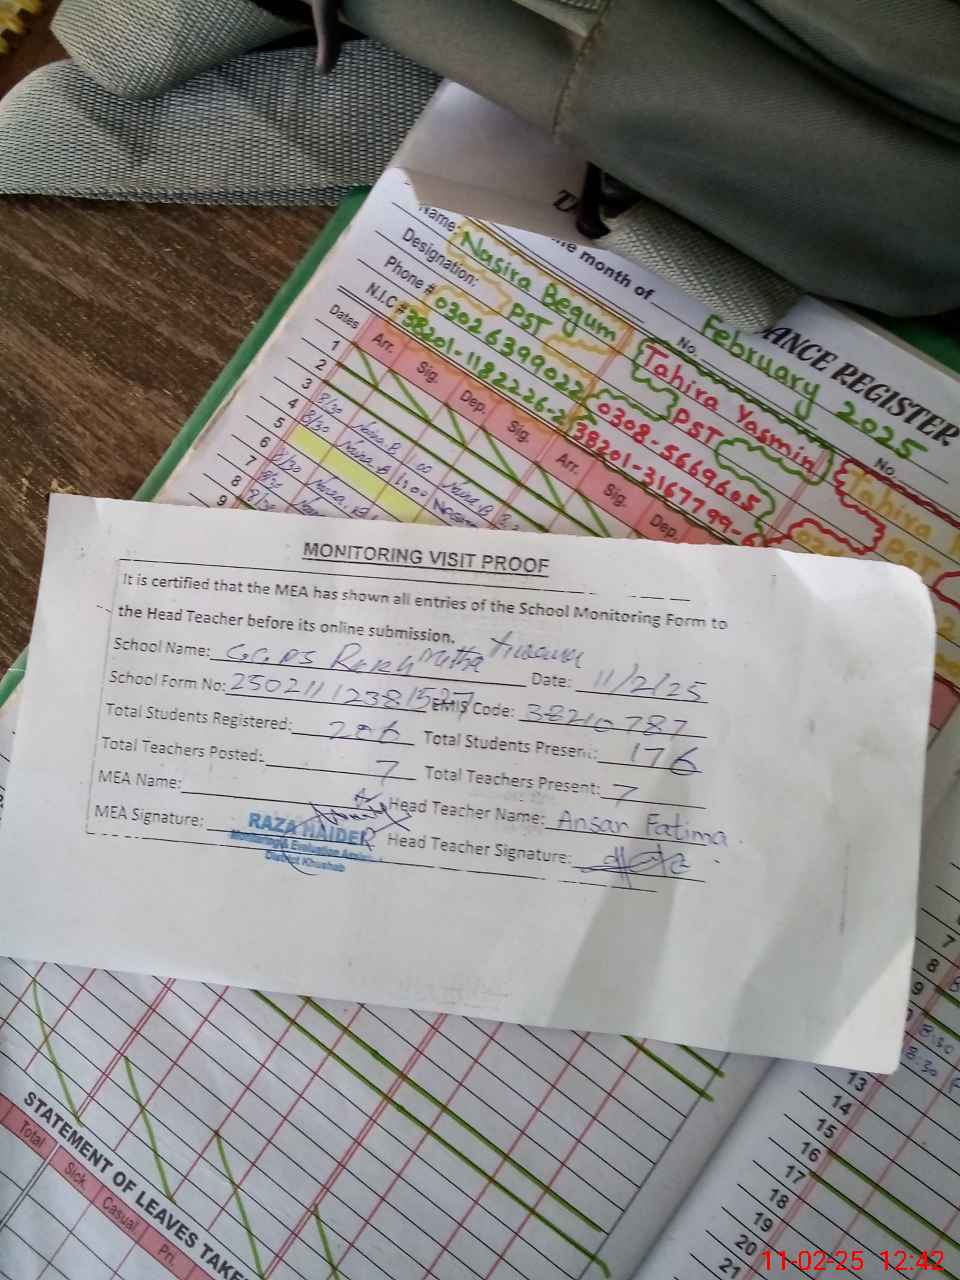 ANCE REGISTER
the month of February 2025
Name: Nasira Begum No. Tahira Yasmin No. Tahira
Designation: PST PST PST
Phone # 03026399022 0308-5669605
N.I.C # 38201-1182226-2 38201-3167799-6
Dates Arr. Sig. Dep. Sig. Arr. Sig. Dep.
1
2
3
4 8/30 Nasira.B 1.00 Nasira.B
5 8/30 Nasira.B 1:00
6
7 8/30
8 8/30
9 8/30
MONITORING VISIT PROOF
It is certified that the MEA has shown all entries of the School Monitoring Form to
the Head Teacher before its online submission.
School Name: GGPS Rakh Mitha Tiwana Date: 11/2/25
School Form No: 25021112381527 EMIS Code: 38210787
Total Students Registered: 206 Total Students Present: 176
Total Teachers Posted: 7 Total Teachers Present: 7
MEA Name: Head Teacher Name: Ansar Fatima
MEA Signature: Head Teacher Signature:
RAZA HAIDER
Monitoring & Evaluation
District Khushab
7
8
9
8:30
8:30
13
14
15
16
17
18
19
20
21
STATEMENT OF LEAVES TAKE
Total Sick Casual Pri.
11-02-25 12:42